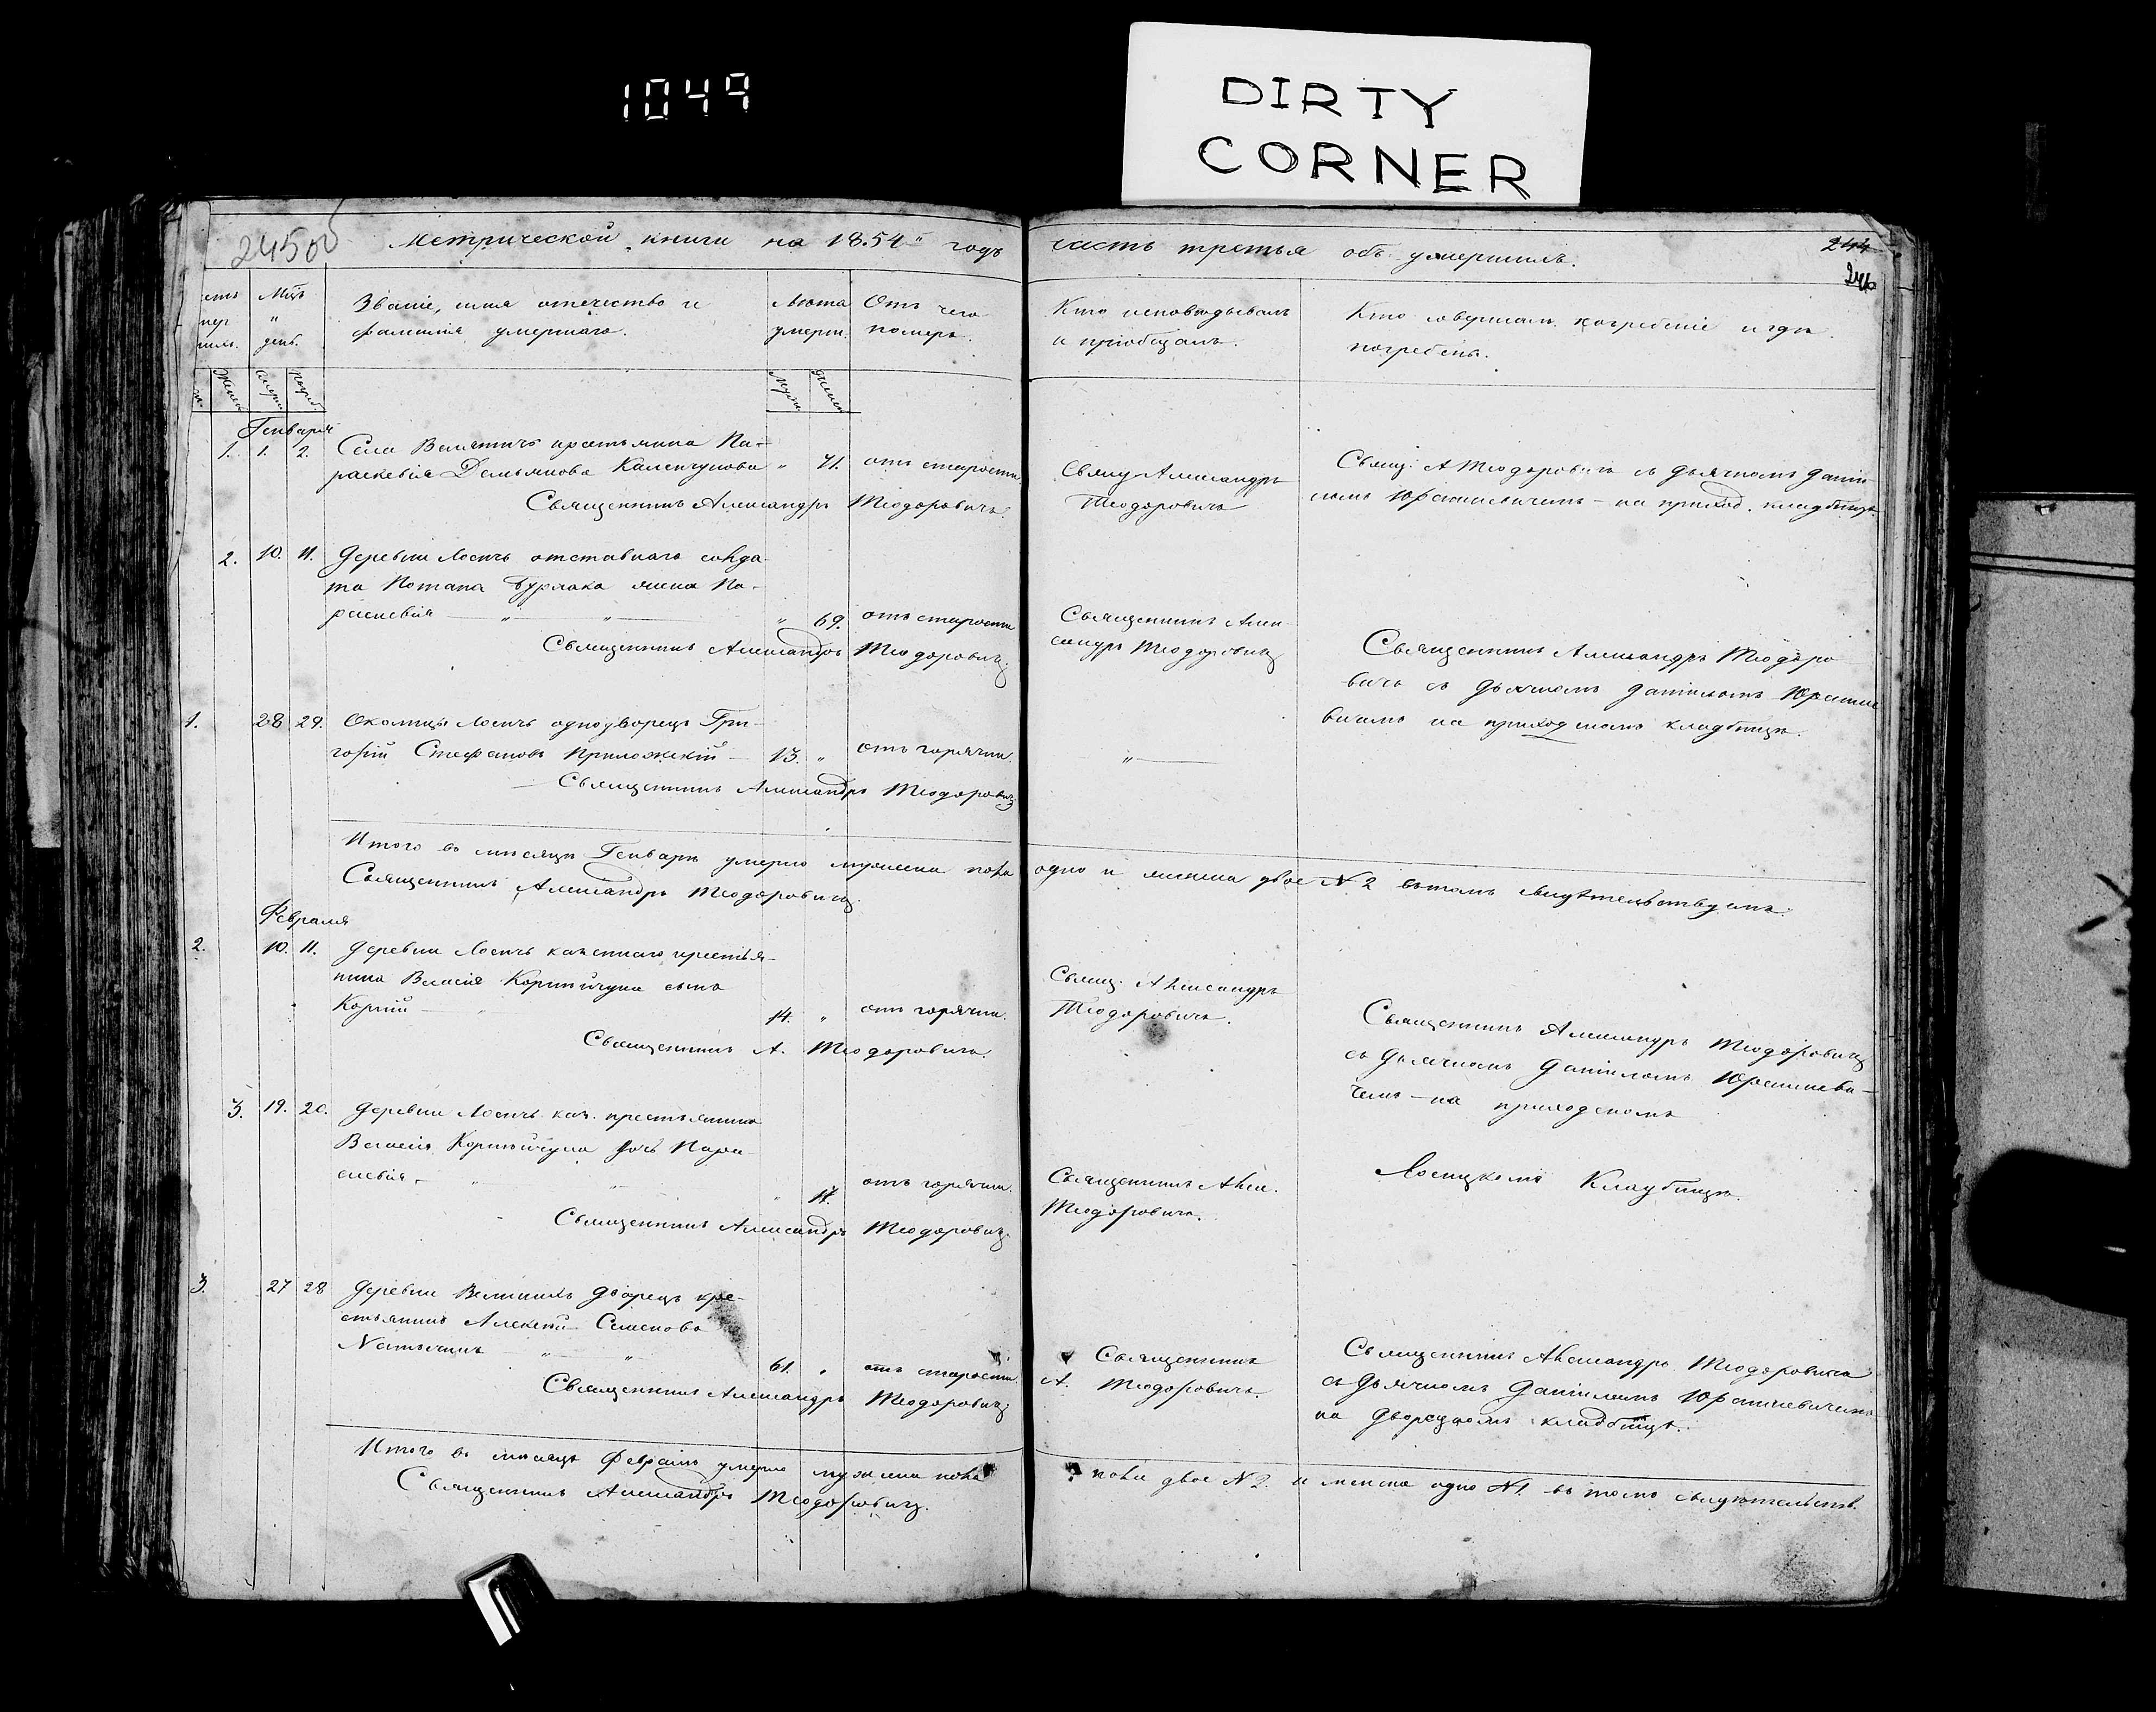 1049
DIRTY
CORNER
245об
Метрической книги на 1854 годъ
часть третья объ умершихъ.
244
246
Мѣсъ
день.
Званіе, имя отечество и
фамилія умершаго.
Лѣта
умерш.
Отъ чего
померъ.
Кто исповѣдывалъ
и пріобщалъ.
Кто совершалъ погребеніе и гдѣ
погребены.
Генваря
1. 1. 2. Села Велятичъ крестьянка Па-
раскевія Демьянова „ 71. отъ старости
Священникъ Александръ Теодоровичъ.
Свящ. Александръ
Теодоровичъ
Свящ. А Теодоровичъ съ дьячкомъ Даніи-
ломъ Юркевичемъ - на приход. кладбищѣ.
2. 10. 11. Деревни Лосичъ отставнаго солда-
та Потапа Бурака жена Па-
раскевія — „ — „ — „ 69. отъ старости
Священникъ Александръ Теодоровичъ.
Священникъ Алек-
сандръ Теодоровичъ
Священникъ Александръ Теодоро-
вичъ съ дьячкомъ Даніиломъ
на приходскомъ кладбищѣ.
1. 28 29. Околицы Лосичъ однодворецъ Гри-
горій Стефановъ — 13. „ отъ горячки.
„ —
Священникъ Александръ Теодоровичъ
Итого въ мѣсяцѣ Генварѣ умерло мужеска пола одно и женска двое N 2 въ томъ свидѣтельствуемъ.
Священникъ Александръ Теодоровичъ.
Февраля
2. 10. 11. Деревни Лосичъ казеннаго крестья-
нина Власія сынъ
Корній — 14. „ отъ горячки.
Священникъ А. Теодоровичъ.
Свящ. Александръ
Теодоровичъ.
Священникъ Александръ Теодоровичъ
съ дьячкомъ Даніиломъ
чемъ - на приходскомъ
Лосицкомъ Кладбищѣ.
3. 19. 20. Деревни Лосичъ каз. крестьянина
Власія дочь Пара-
скевія. „ 17. отъ горячки.
Священникъ Александръ Теодоровичъ.
Священникъ Алек.
Теодоровичъ.
3. 27 28 Деревни дворецъ кре-
стьянинъ Алексѣй Семеновъ
— „ — „ 61. „ отъ старости.
Священникъ Александръ Теодоровичъ
Священникъ
А. Теодоровичъ.
Священникъ Александръ Теодоровичъ
съ дьячкомъ Даніиломъ
на Дворецкомъ кладбищѣ.
Итого въ мѣсяцѣ Февралѣ умерло мужеска пола
пола двое N 2. и женска одно N 1. въ томъ свидѣтельств.
Священникъ Александръ Теодоровичъ.